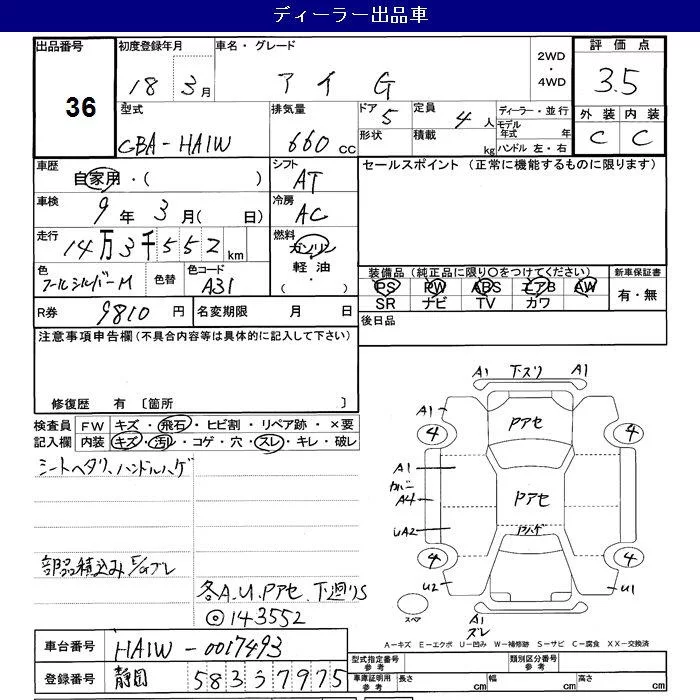 ディーラー出品車
出品番号 初度登録年月 車名・グレード 2WD・4WD 評価点
36 18 3月 アイ G 3.5
型式 排気量 ドア 5 定員 4人 ディーラー・並行 外装 内装
CBA-HA1W 660cc 形状 積載 kg モデル年式 年 C C
ハンドル 左・右
車歴 自家用・( ) シフト AT セールスポイント (正常に機能するものに限ります)
車検 9年 3月( 日) 冷房 AC
走行 14万3千552km 燃料 ガソリン・軽油・
色 クールシルバーM 色替 色コード A31 装備品(純正品に限り○をつけてください) 新車保証書
PS PW ABS エアB AW 有・無
SR ナビ TV カワ
R券 9810円 名変期限 月 日 後日品
注意事項申告欄(不具合内容等は具体的に記入して下さい)
修復歴 有 〔箇所 〕
検査員 FW キズ・飛石・ヒビ割・リペア跡・×要
記入欄 内装 キズ・汚レ・コゲ・穴・スレ・キレ・破レ
シートヘタリ、ハンドルハゲ
部品積込み E/Gブレ
各A.U.Pアセ.下廻りS
◎143552
A1 下スリ A1
A1 Pアセ
4 4
A1
カバー
A4 Pアセ
UA2
4 4
U2 U1
スペア A1
ズレ
A-キズ E-エクボ U-凹み W-補修跡 S-サビ C-腐食 XX-交換済
車台番号 HA1W-0017493
型式指定番号 参考 類別区分番号 参考
登録番号 静岡 583 37975
車庫証明用 参考 長さ cm 幅 cm 高さ cm